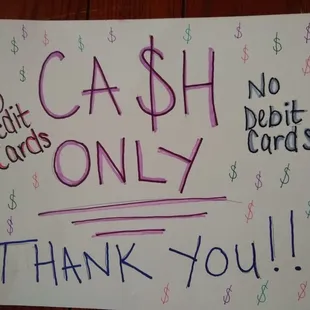 CA$H
ONLY
No
Credit
Cards
No
Debit
Cards
THANK YOU!!